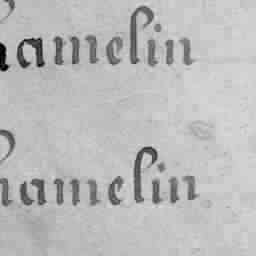 hamelin
hamelin